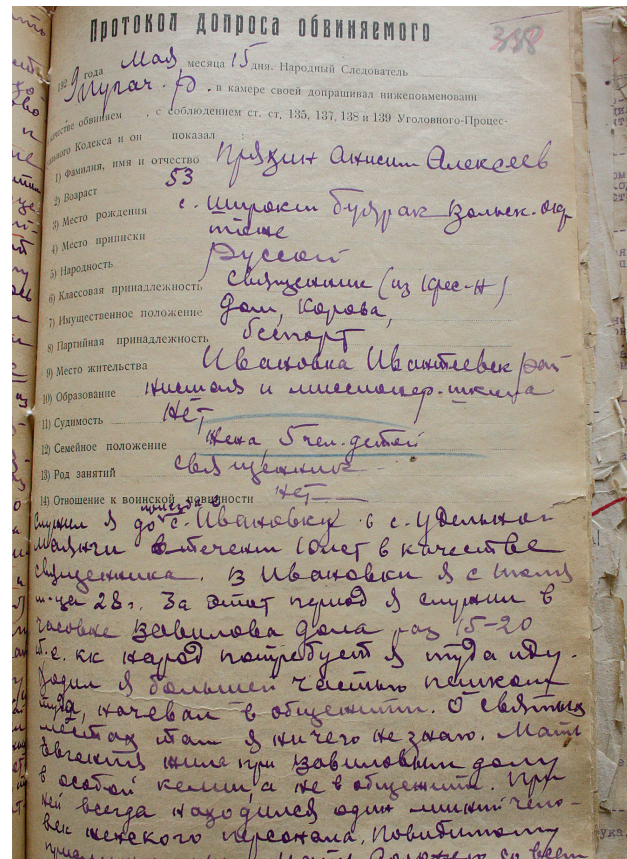 Протокол допроса обвиняемого
338
1929 года Мая месяца 15 дня. Народный Следователь
Пугач. р. в камере своей допрашивал нижепоименованн
качестве обвиняем , с соблюдением ст. ст. 135, 137, 138 и 139 Уголовного-Процес-
ального Кодекса и он показал :
1) Фамилия, имя и отчество Пряхин Анисим Алексеев
2) Возраст 53
3) Место рождения с. Широкий Буярак Вольск. окр
4) Место приписки тоже
5) Народность Русской
6) Классовая принадлежность священник (из крес-н)
7) Имущественное положение дом, корова,
8) Партийная принадлежность беспарт
9) Место жительства Ивановка Ивантеевск рай
10) Образование низшая и миссионер. школа
11) Судимость нет
12) Семейное положение жена, 5 чел. детей
13) Род занятий священник
14) Отношение к воинской повинности нет
Служил я до приезда в с. Ивановку в с. Удельной
Маянги в течении 10 лет в качестве
священника. В Ивановки я с июля
м-ца 28 г. За этот период я служил в
часовне Вавилова дола раз 15-20
т.е. кк народ потребует я туда иду.
Ходил я большей частью пешком
туда, начевал в общежитии. О святых
местах там я ничего не знаю. Мать
Евгения жила при Вавиловом долу
в особой келии, а не в общежитии. При
ней всегда находился один чело-
век женского персонала, повидимому